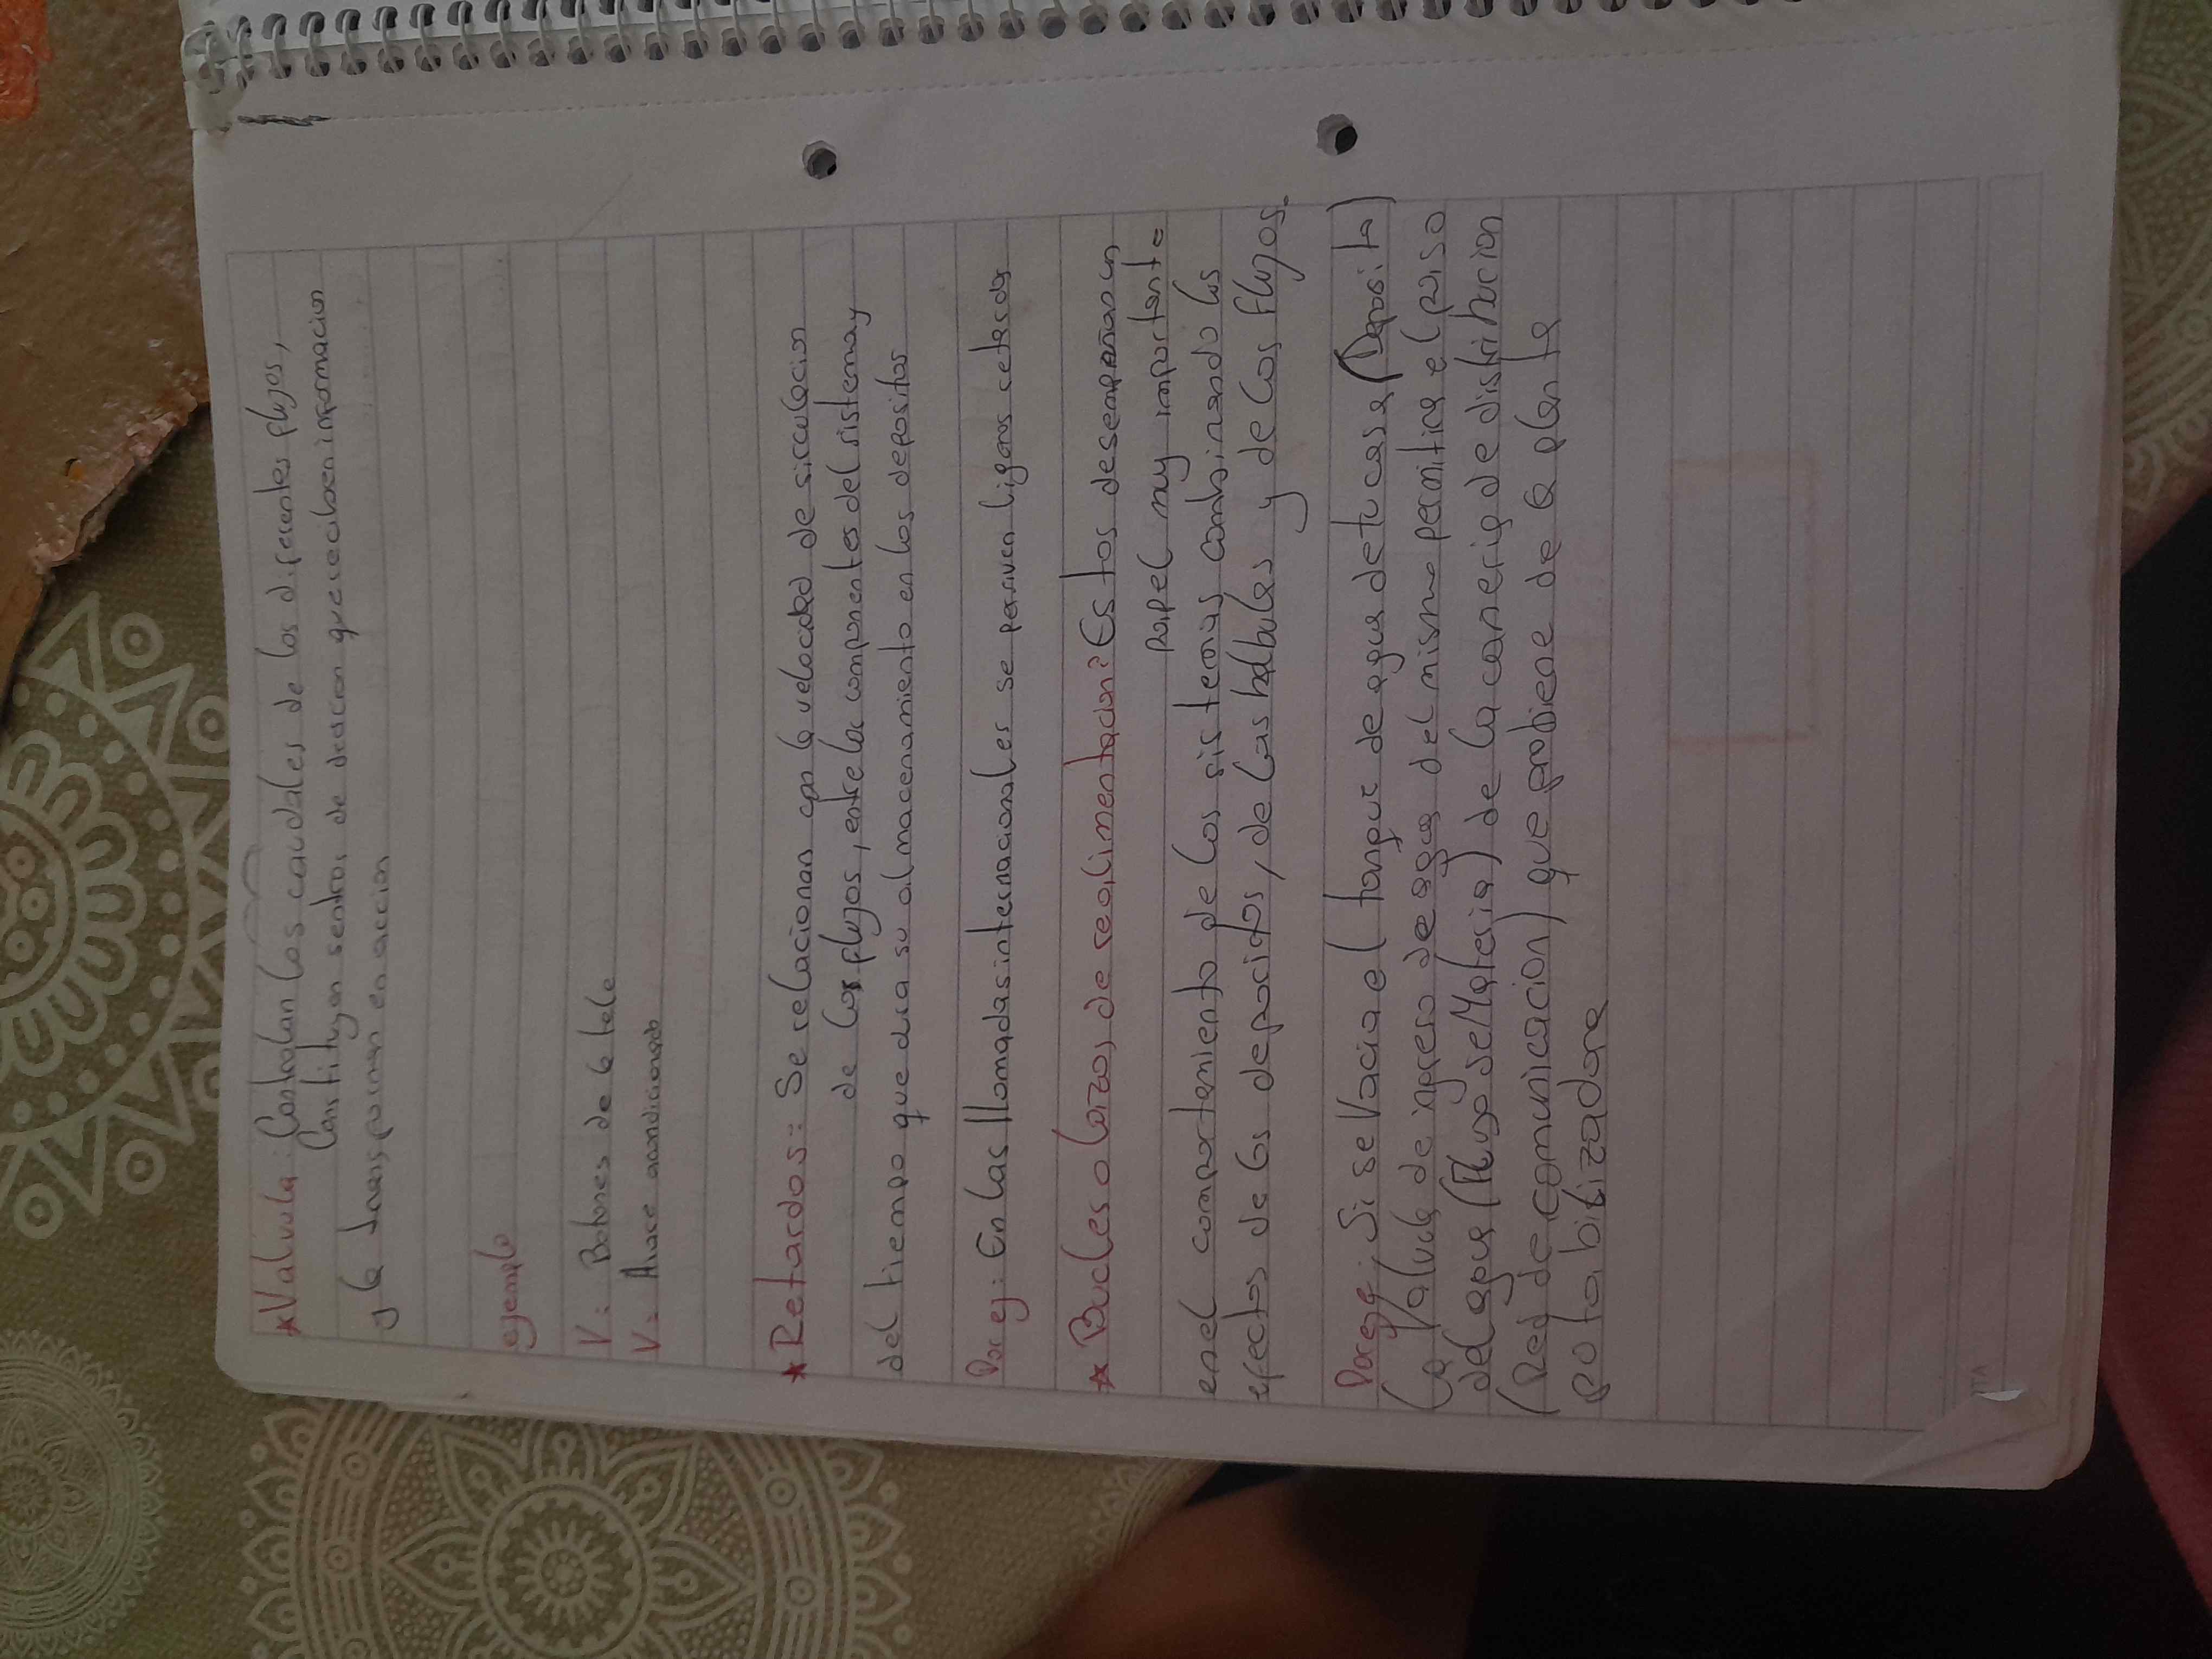 *Valvula: Controlan los caudales de los diferentes flujos,
Constituyen sentros de desicion que reciben informacion
y la transforman en accion
ejemplo
V= Botones de la tele
V= Aiare acondicionado
*Retardos: Se relacionan con la velocidad de sirculacion
de los flujos, entre los componentes del sistema y
del tiempo que dura su almacenamiento en los depositos
Por ej: En las llamadas internacionales se perciven ligeros retardos
*Bucles o lazos, de realimentacion: Estos desempeñan un
papel muy importante
en el comportamiento de los sistemas combinando los
efectos de los depocitos, de las balbulas y de los flujos.
Por eje: Si se Vacia el tanque de agua de tu casa (Deposito)
la Valvula de ingreso de agua del mismo permitira el paso
del agua (Flujo de Materia) de la cañeria de distribucion
(Red de comunicacion) que probiene de la planta
potabilizadora